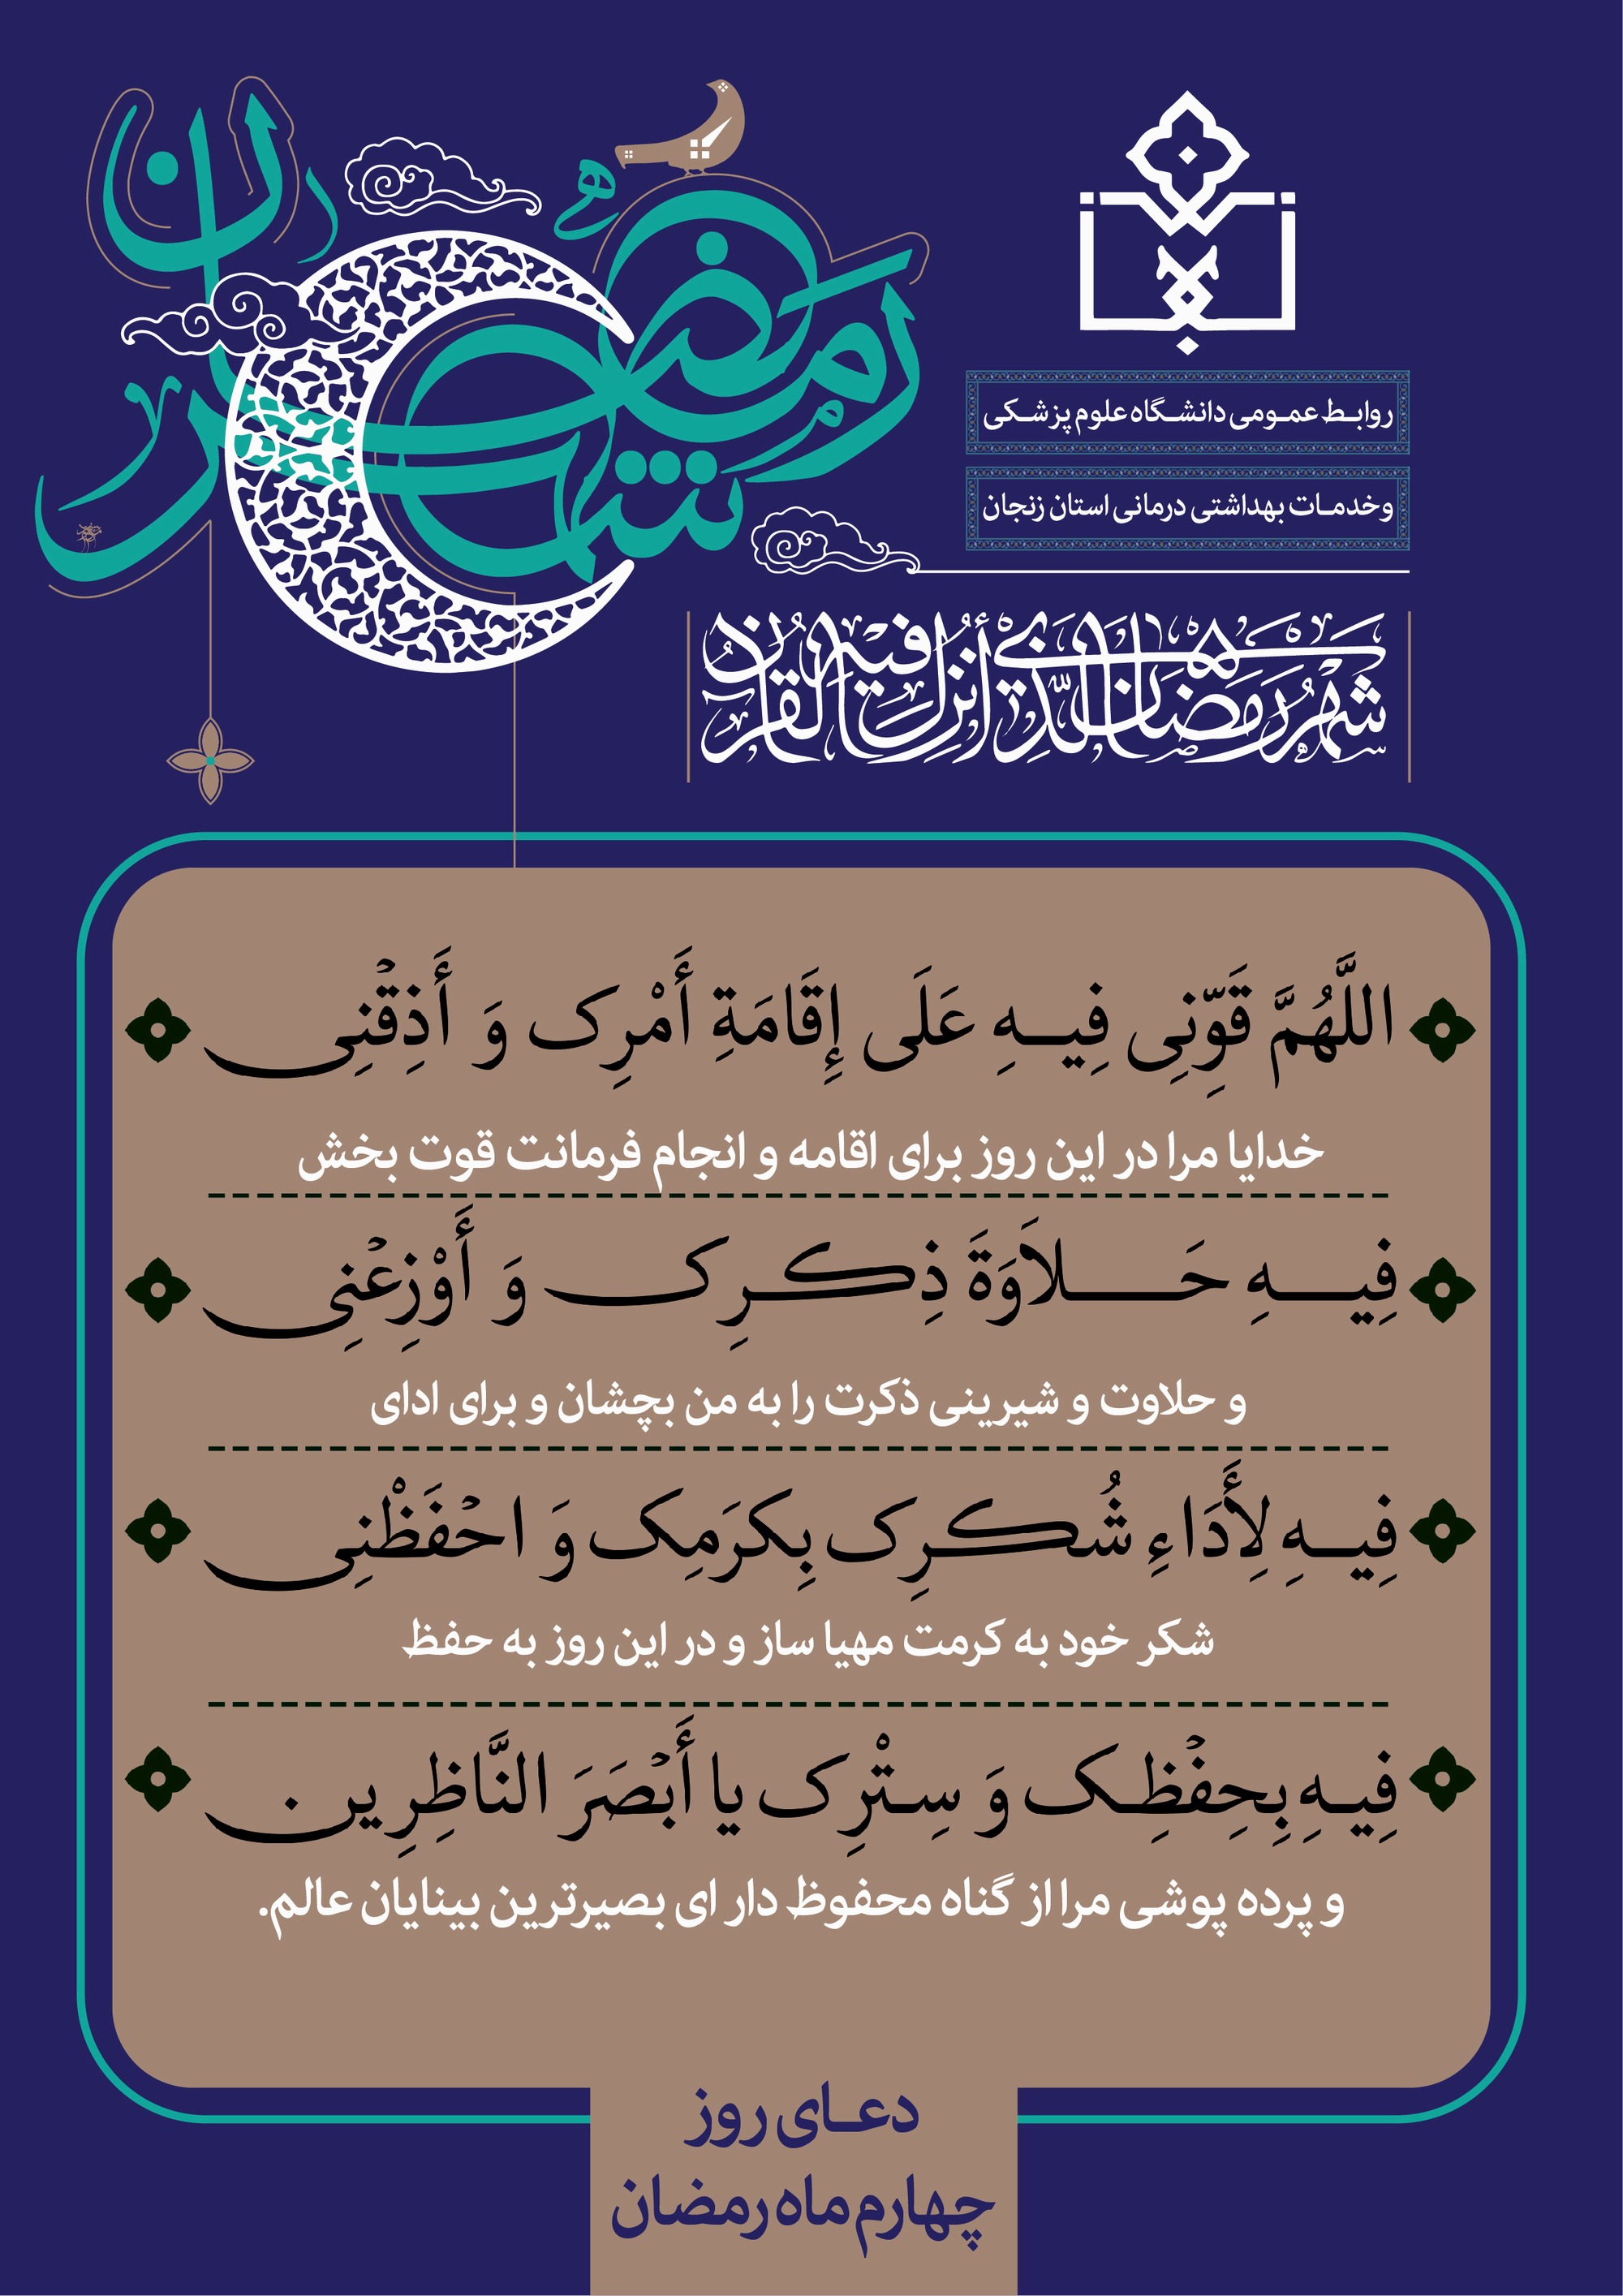 شهر رمضان
روابط عمومی دانشگاه علوم پزشکی
وخدمات بهداشتی درمانی استان زنجان
شهر رمضان الذی أنزل فیه القرآن
اللَّهُمَّ قَوِّنِی فِیهِ عَلَی إِقَامَةِ أَمْرِک وَ أَذِقْنِی
خدایا مرا در این روز برای اقامه و انجام فرمانت قوت بخش
فِیهِ حَلاَوَةَ ذِکرِکَ وَ أَوْزِعْنِی
و حلاوت و شیرینی ذکرت را به من بچشان و برای ادای
فِیهِ لِأَدَاءِ شُکرِک بِکرَمِک وَ احْفَظْنِی
شکر خود به کرمت مهیا ساز و در این روز به حفظ
فِیهِ بِحِفْظِک وَ سِتْرِک یا أَبْصَرَ النَّاظِرِین.
و پرده پوشی مرا از گناه محفوظ دار ای بصیرترین بینایان عالم.
دعای روز
چهارم ماه رمضان